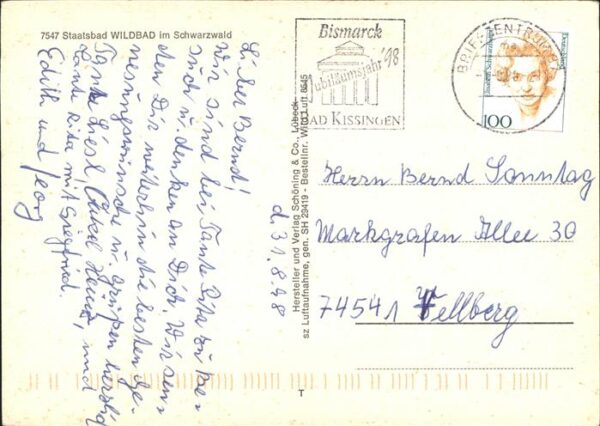 7547 Staatsbad WILDBAD im Schwarzwald
Lieber Bernd!
Wir sind bei Tante Rita zu Be-
such u. denken an Dich. Wir sen-
den Dir weiterhin die besten Ge-
nesungswünsche u. grüßen herzlich
Tante Liesl Onkel Heinz, und
Tante Rita mit Siegfried.
Edith und Georg
d 31.8.98
Hersteller und Verlag Schöning & Co., Lübeck
sz Luftaufnahme, gen. SH 29419 - Bestellnr. Wild Luft 8545
Bismarck
Jubiläumsjahr '98
BAD KISSINGEN
BRIEFZENTRUM 97
100
Herrn Bernd Sonntag
Markgrafen Allee 30
74541 Vellberg
T